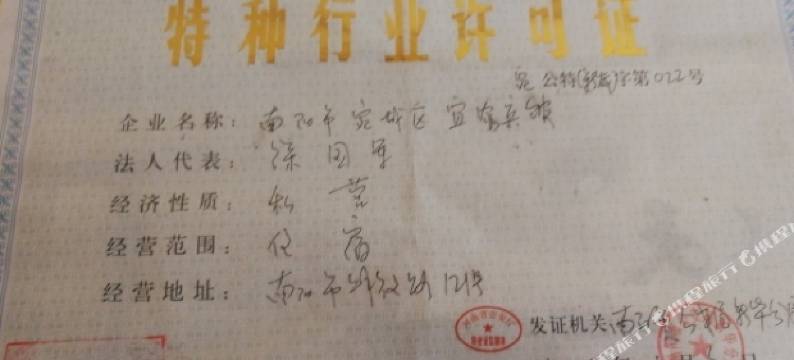 特种行业许可证
宛公特()字第022号
企业名称：南阳市宛城区宜宾馆
法人代表：徐国军
经济性质：私营
经营范围：住宿
经营地址：南阳市路12号
发证机关南阳市公安局分局
携程旅行